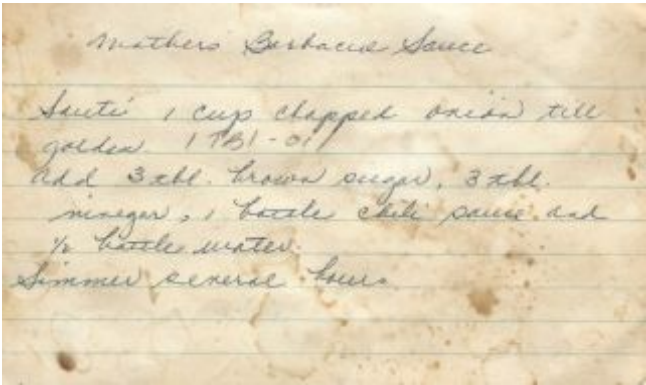 Mothers Barbacue Sauce
Sauté 1 cup chopped onion till
golden 1 TBl - oil
add 3 tbl. brown sugar, 3 tbl.
vineger, 1 bottle chili sauce and
½ bottle water.
Simmer several hours